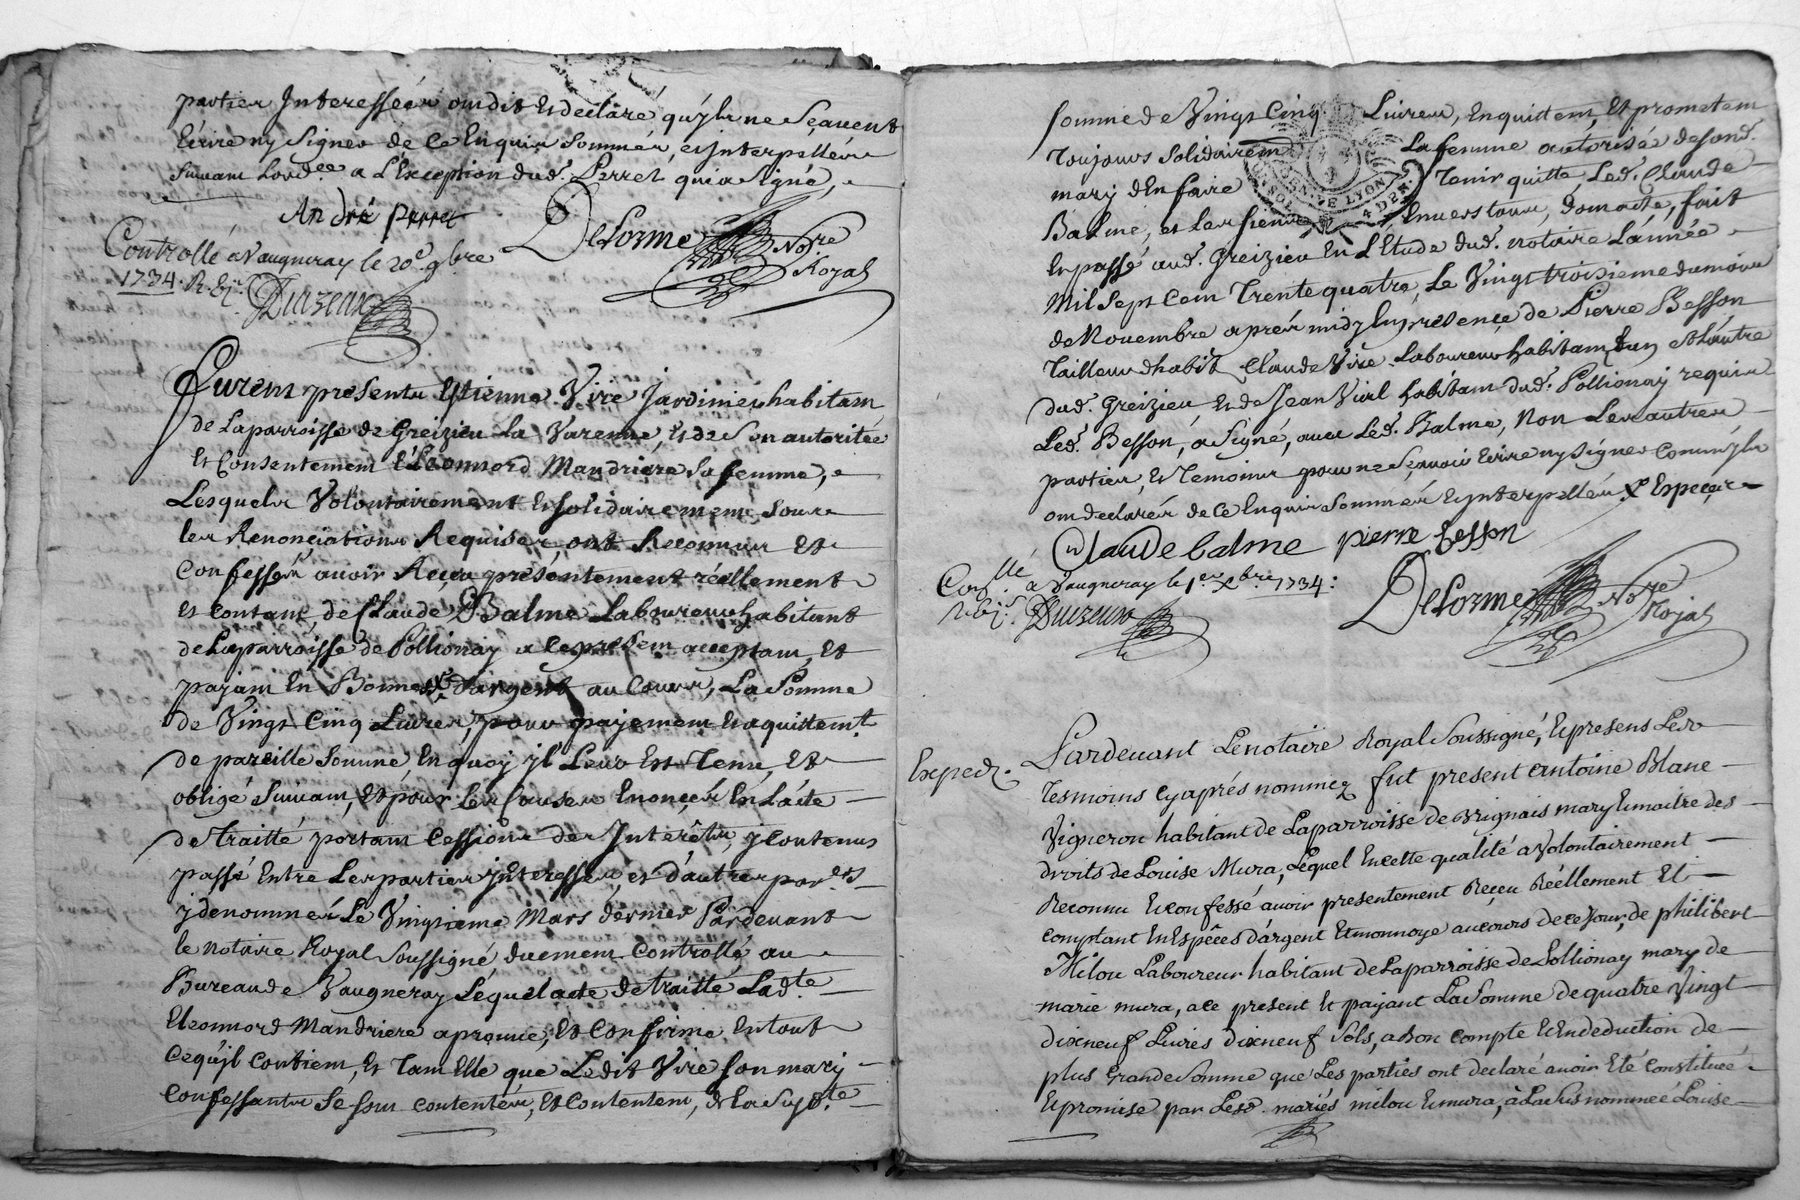 parties Interesséés ont dit et declaré qu'ils ne Sçavent
Ecrire ny Signer de Ce Enquis Sommés, et Interpellés
Suivant Lord.ce a L'Exception dud. Perret qui a Signé,
André Perret
Delorme Not.re Royal
Controllé a Vaugneray le 20.e 9bre
1734. R.
Durzeux
Furent presents Estienne Viré Jardinier habitant
de Laparroisse de Greizieu la Varenne, et de Son autoritée
et Consentement Eleonnord Mandriere Sa femme,
Lesquels Volontairement et solidairement Sous
les Renonciations Requises, ont Reconnu et
Confessés avoir Reçeu présentement réellement
et contant, de Claude Balme Laboureur habitant
de Laparroisse de Pollionay a Ce present acceptant, et
payant En Bonnes d'argent au Cours, La Somme
de Vingt Cinq Livres, pour payement et aquittem.t
de pareille Somme, En quoy jl Leur Est Tenu, Et
obligé Suivant, et pour Les Causes Enoncés En L'acte
de traitté portant Cessions des Interêts, y Contenus
passé Entre Les parties jnteressés, et d'autres
y denommés Le Vingtieme Mars dernier Pardevant
le Notaire Royal Soussigné duement Controllé au
Bureau de Vaugneray Lequel acte de traitté Lad.te
Eleonnord Mandriere aprouve, et Confirme En tout
Ce qu'jl Contient, et Tant Elle que Ledit Viré Son mary
Confessants Se sont contentés, et Contentent, de La Susd.te
Somme de Vingt Cinq Livres, En quittent, et prometent
Toujours Solidairem.t La femme autorisée de sond.
mary d'En faire Tenir quitte Led. Claude
Balme, et Les siens Envers tous, dont acte, fait
Et passé aud. Greizieu En L'Etude dud. notaire L'année
Mil Sept Cent Trente quatre, Le Vingt troisieme du mois
de Novembre apres midy En presence de Pierre Besson
Tailleur d'habit, Claude Viré Laboureur habitant L'un et L'autre
dud. Greizieu et de Jean Vial habitant dud. Pollionay requis
Led. Besson, a Signé, avec Led. Balme, Non Les autres
parties, et Temoins pour ne Sçavoir Ecrire ny Signer Comm'jls
ont declarés de Ce Enquis Sommés et jnterpellés X Especes
Claude balme pierre besson
Con.llé a Vaugneray le 1.er Xbre 1734:
Durzeux
Delorme No.re Royal
Exped.
Pardevant Le notaire Royal Soussigné, Et presens Les
Tesmoins cy aprés nommez fut present Antoine Blanc
Vigneron habitant de La parroisse de Brignais mary et maitre des
droits de Louise Mura, Lequel En cette qualité a Volontairement
Reconnu Et confessé avoir presentement Reçeu Réellement Et
comptant En Espêces d'argent Et monnoye au cours de ce Jour, de philibert
Milou Laboureur habitant de La parroisse de Pollionay mary de
marie mura, a ce present Et payant La Somme de quatre Vingt
dixneuf Livres dixneuf Sols, a Bon compte Et En deduction de
plus Grande Somme que Les parties ont declaré avoir Eté Constituée
Et promise par Lesd. mariés milou Et mura, à La Sus nommée Louise